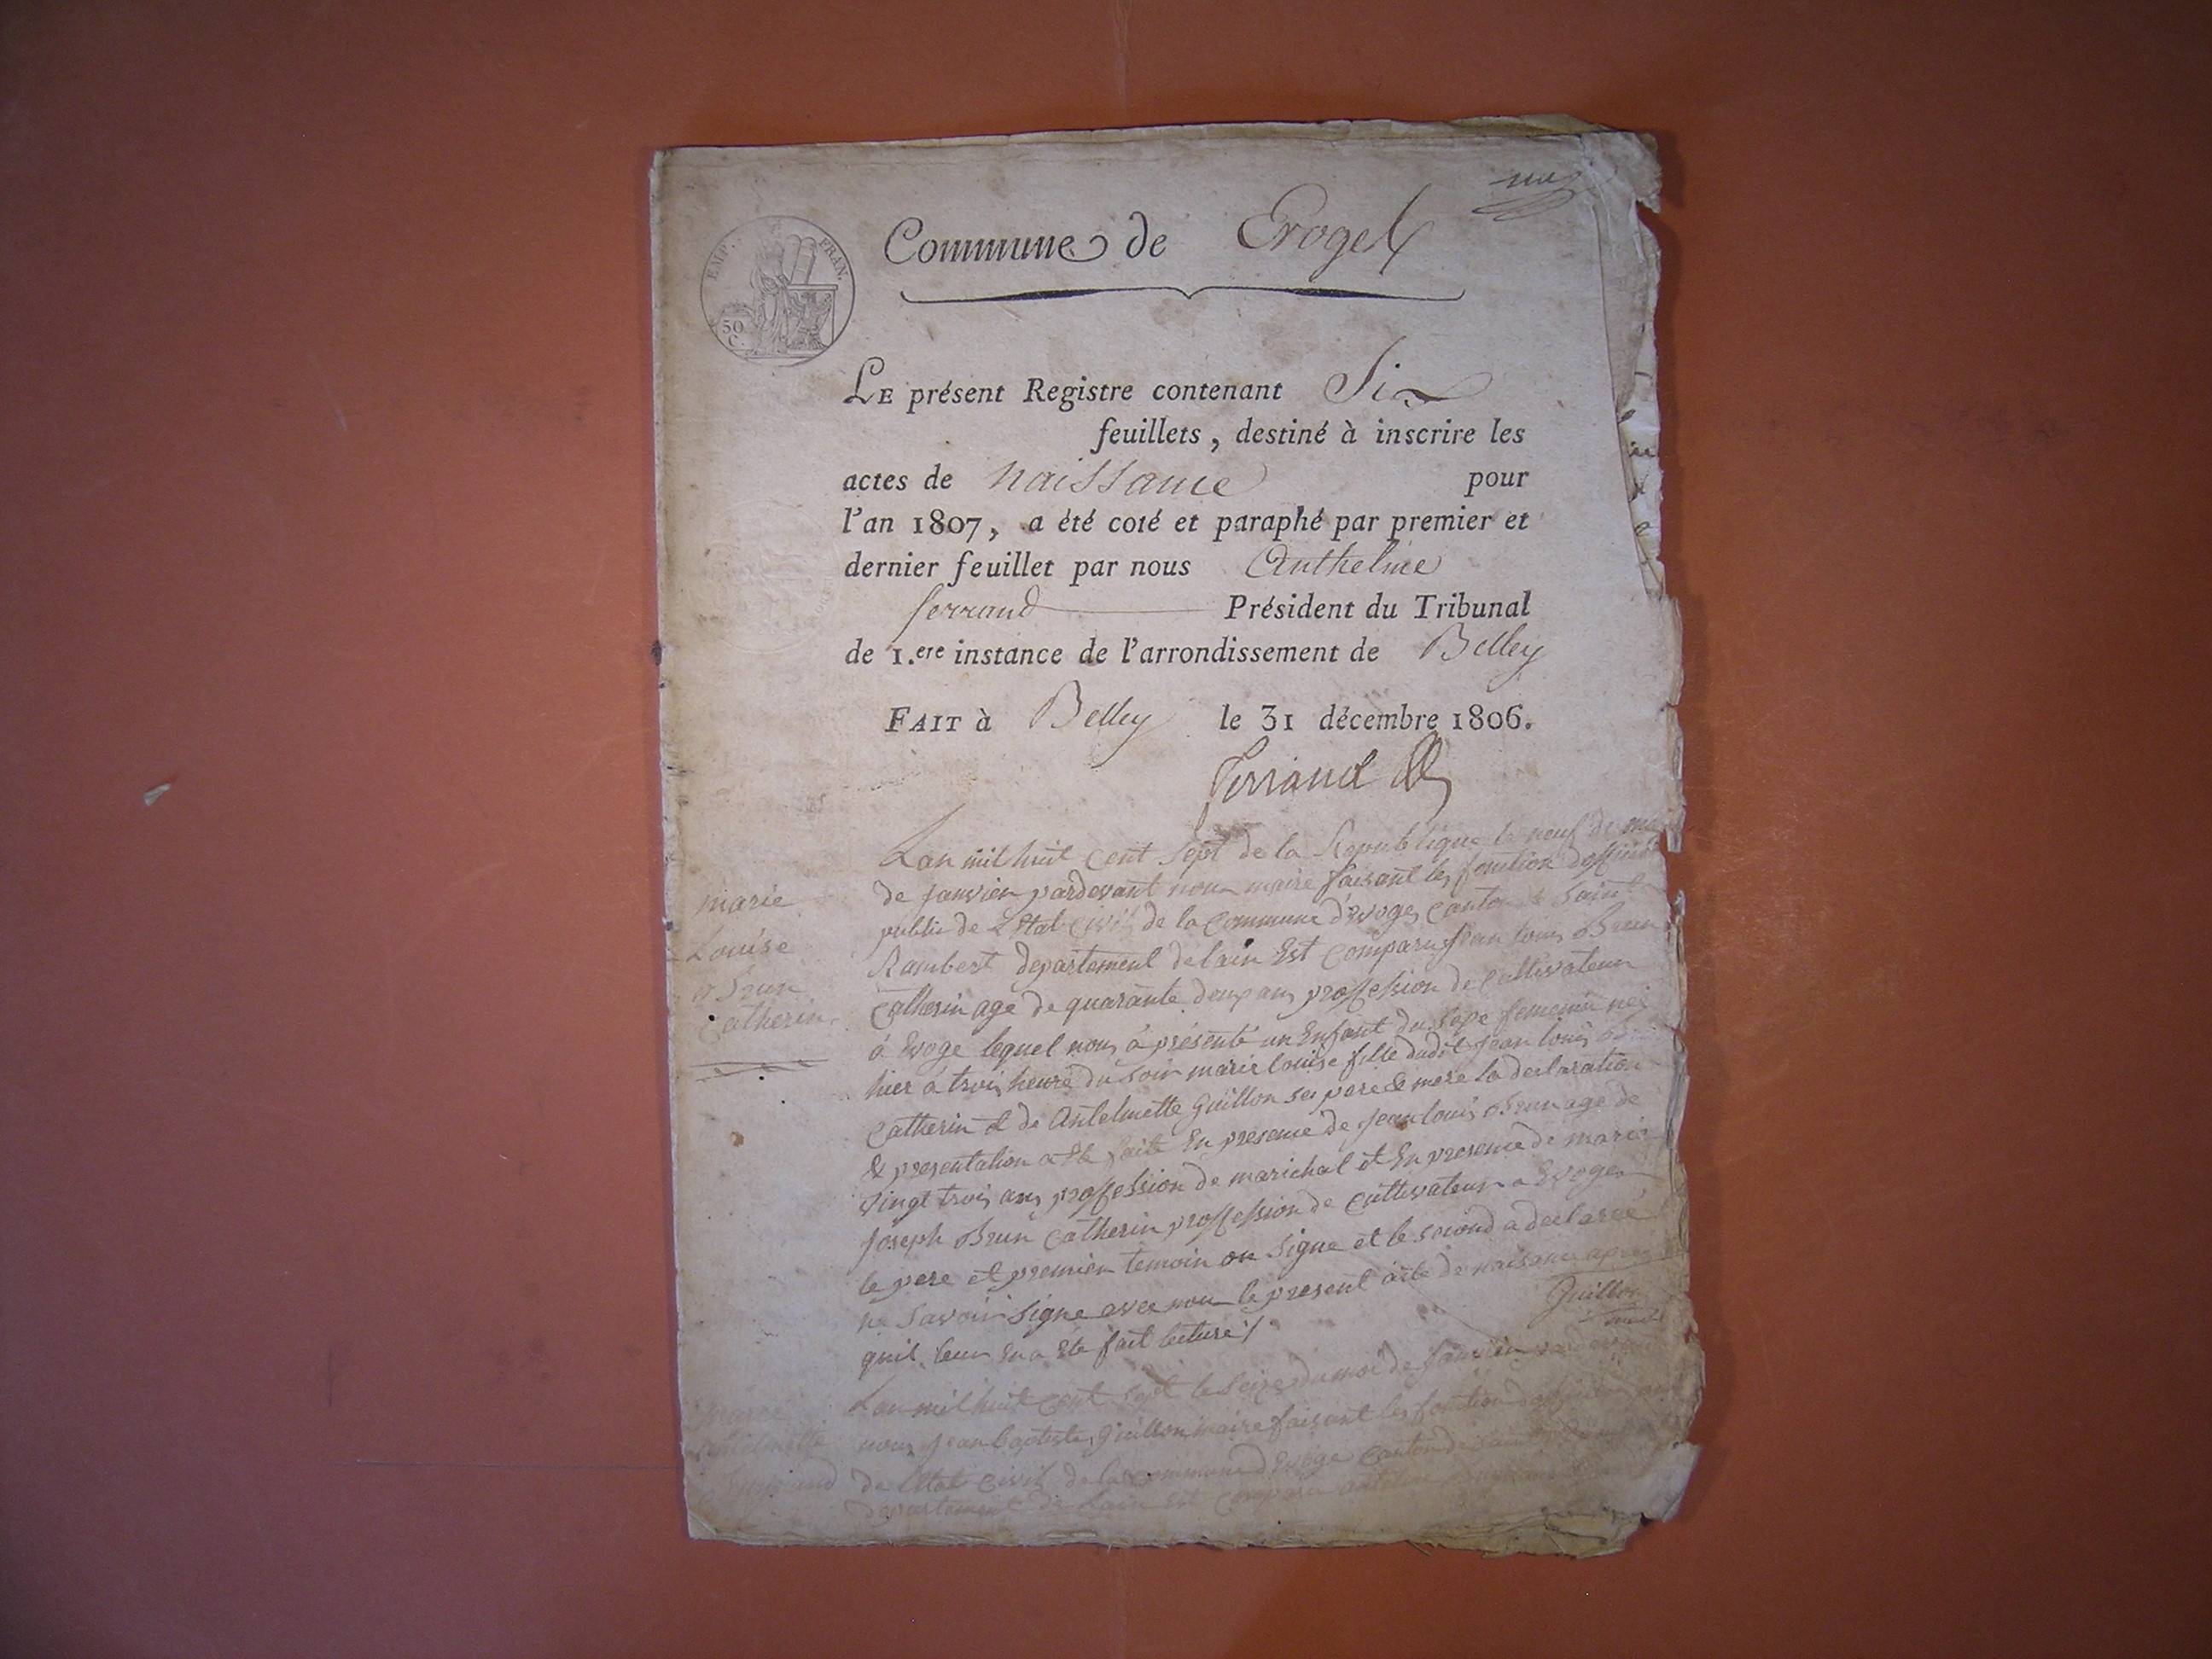 une
Commune de Evoges
EMP. FRAN.
50
C.
LE présent Registre contenant Six
feuillets, destiné à inscrire les
actes de naissance pour
l'an 1807, a été coté et paraphé par premier et
dernier feuillet par nous Anthelme
ferrand Président du Tribunal
de 1.ere instance de l'arrondissement de Belley
FAIT à Belley le 31 décembre 1806.
Ferrand
marie
Louise
Brun
Catherin
Lan mil huit cent sept de la Republique le neuf de
de janvier pardevant nous maire faisant les fonction
public de Létat Civil de la Commune devoges Canton de Saint
Rambert departement delain Est comparu jean louis Brun
Catherin age de quarante deux ans profession de Cultivateur
á Evoge lequel nous á présenté un Enfant du sexe femenin
hier á trois heure du soir marie louise fille dudit jean louis
Catherin et de Antelmette Guillon ses pere & mere la declaration
& presentation a été faite En presence de jean louis Brun age de
vingt trois ans profession de marichal et En presence de marie
joseph Brun Catherin profession de Cultivateur a Evoges
le pere et premier temoin on signe et le second a declaré
ne savoir signe avec nous le present acte de naisance apres
quil leur En a Eté fait lecture
Guillon
maire
Lan mil huit cent sept le seize du moi de janvier
nous jean baptiste Guillon maire faisant les fonction
de létat Civil de la commune devoge canton de saint
departement de Lain Est comparu